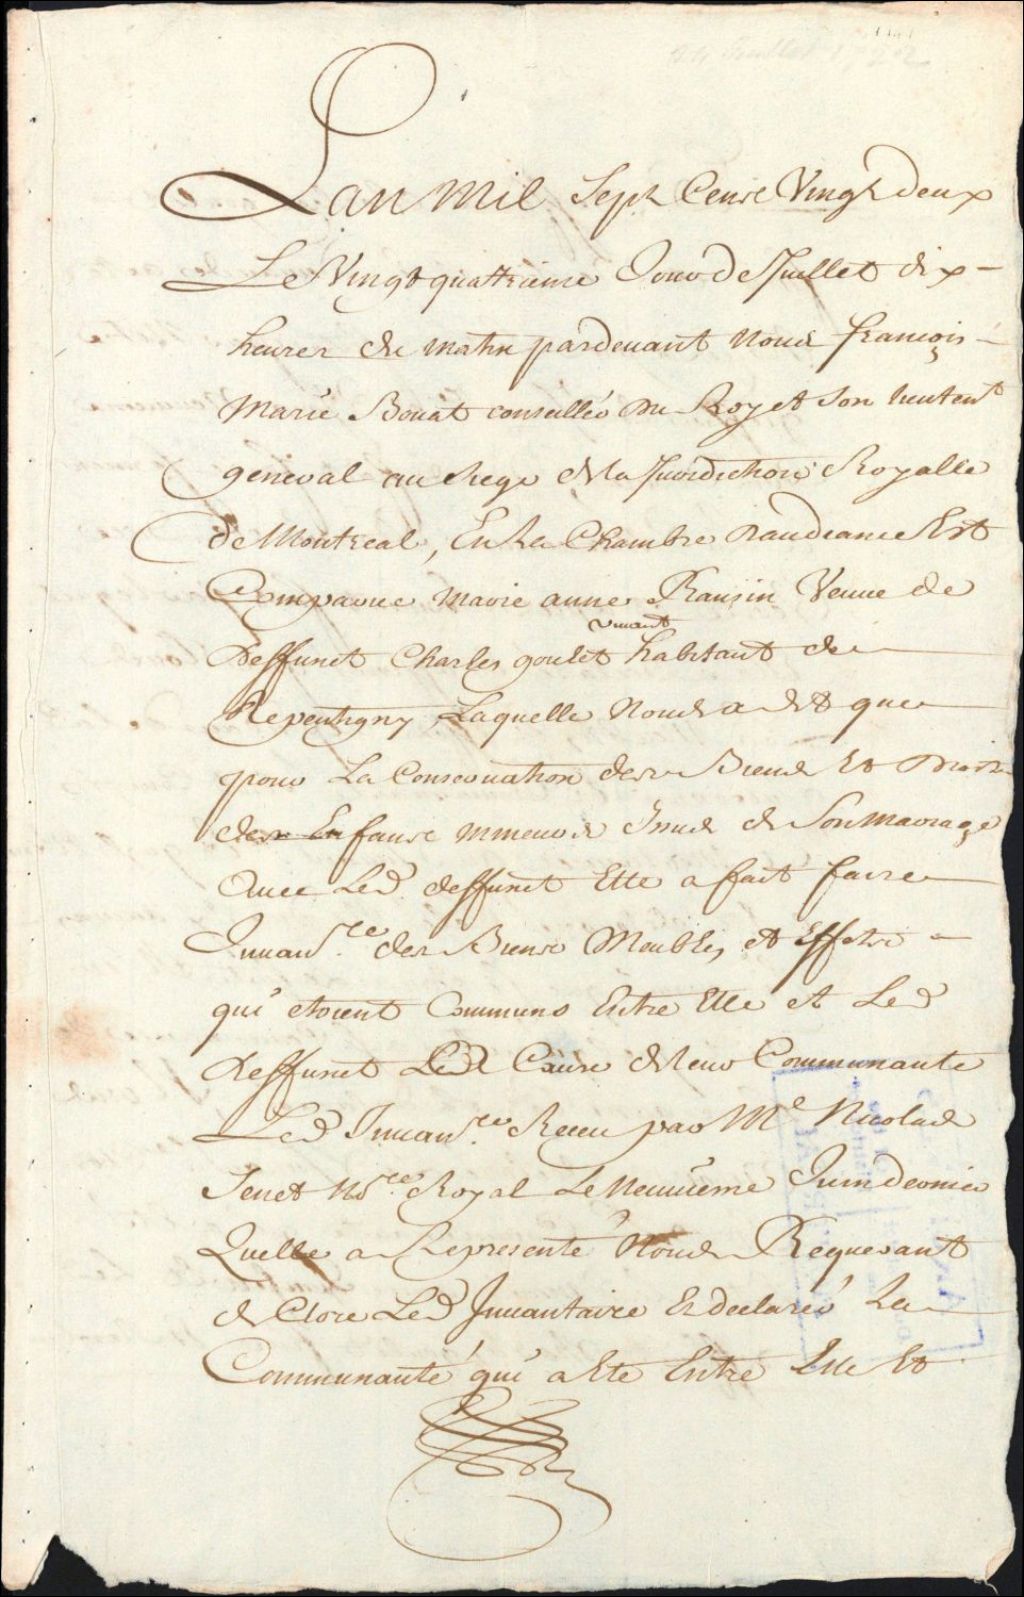 24 Juillet 1722
Lan mil Sept Cens Vingt deux
Le Vingt quattrieme Jour de Juillet dix
heures du matin pardevant Nous françois
Marie Bouat conseiller du Roy et Son lieutent
general au siege de la Juridiction Royalle
de Montreal, En La Chambre daudiance Est
Comparue marie anne Ransin Veuve de
vivant
deffunct Charles goulet habitant de
Repentigny Laquelle Nous a dit que
pour La Conservation des Biens Et Droits
des Enfans mineurs Issus de Son Mariage
Avec Led. deffunct Elle a fait faire
Invanre. des Biens Meubles et Effets
qui etoient Communs Entre Elle et Led
deffunct Led Cause de leur Communauté
Led Invanre. Receu par Me Nicolas
Senet Nore. Royal Le Neuvieme Juin dernier
Quelle a Representé Nous Requerant
de Clore Led Invantaire Et declarer La
Communauté qui a Eté Entre Elle Et